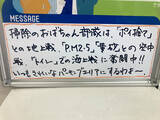 MESSAGE
掃除のおばちゃん部隊は、「ポイ捨て」
との地上戦、「P.M2.5」「黄砂」との空中
戦、「トイレ」での海上戦に奮闘中!!
いつもきれいなパーキングエリアにするわよ〜